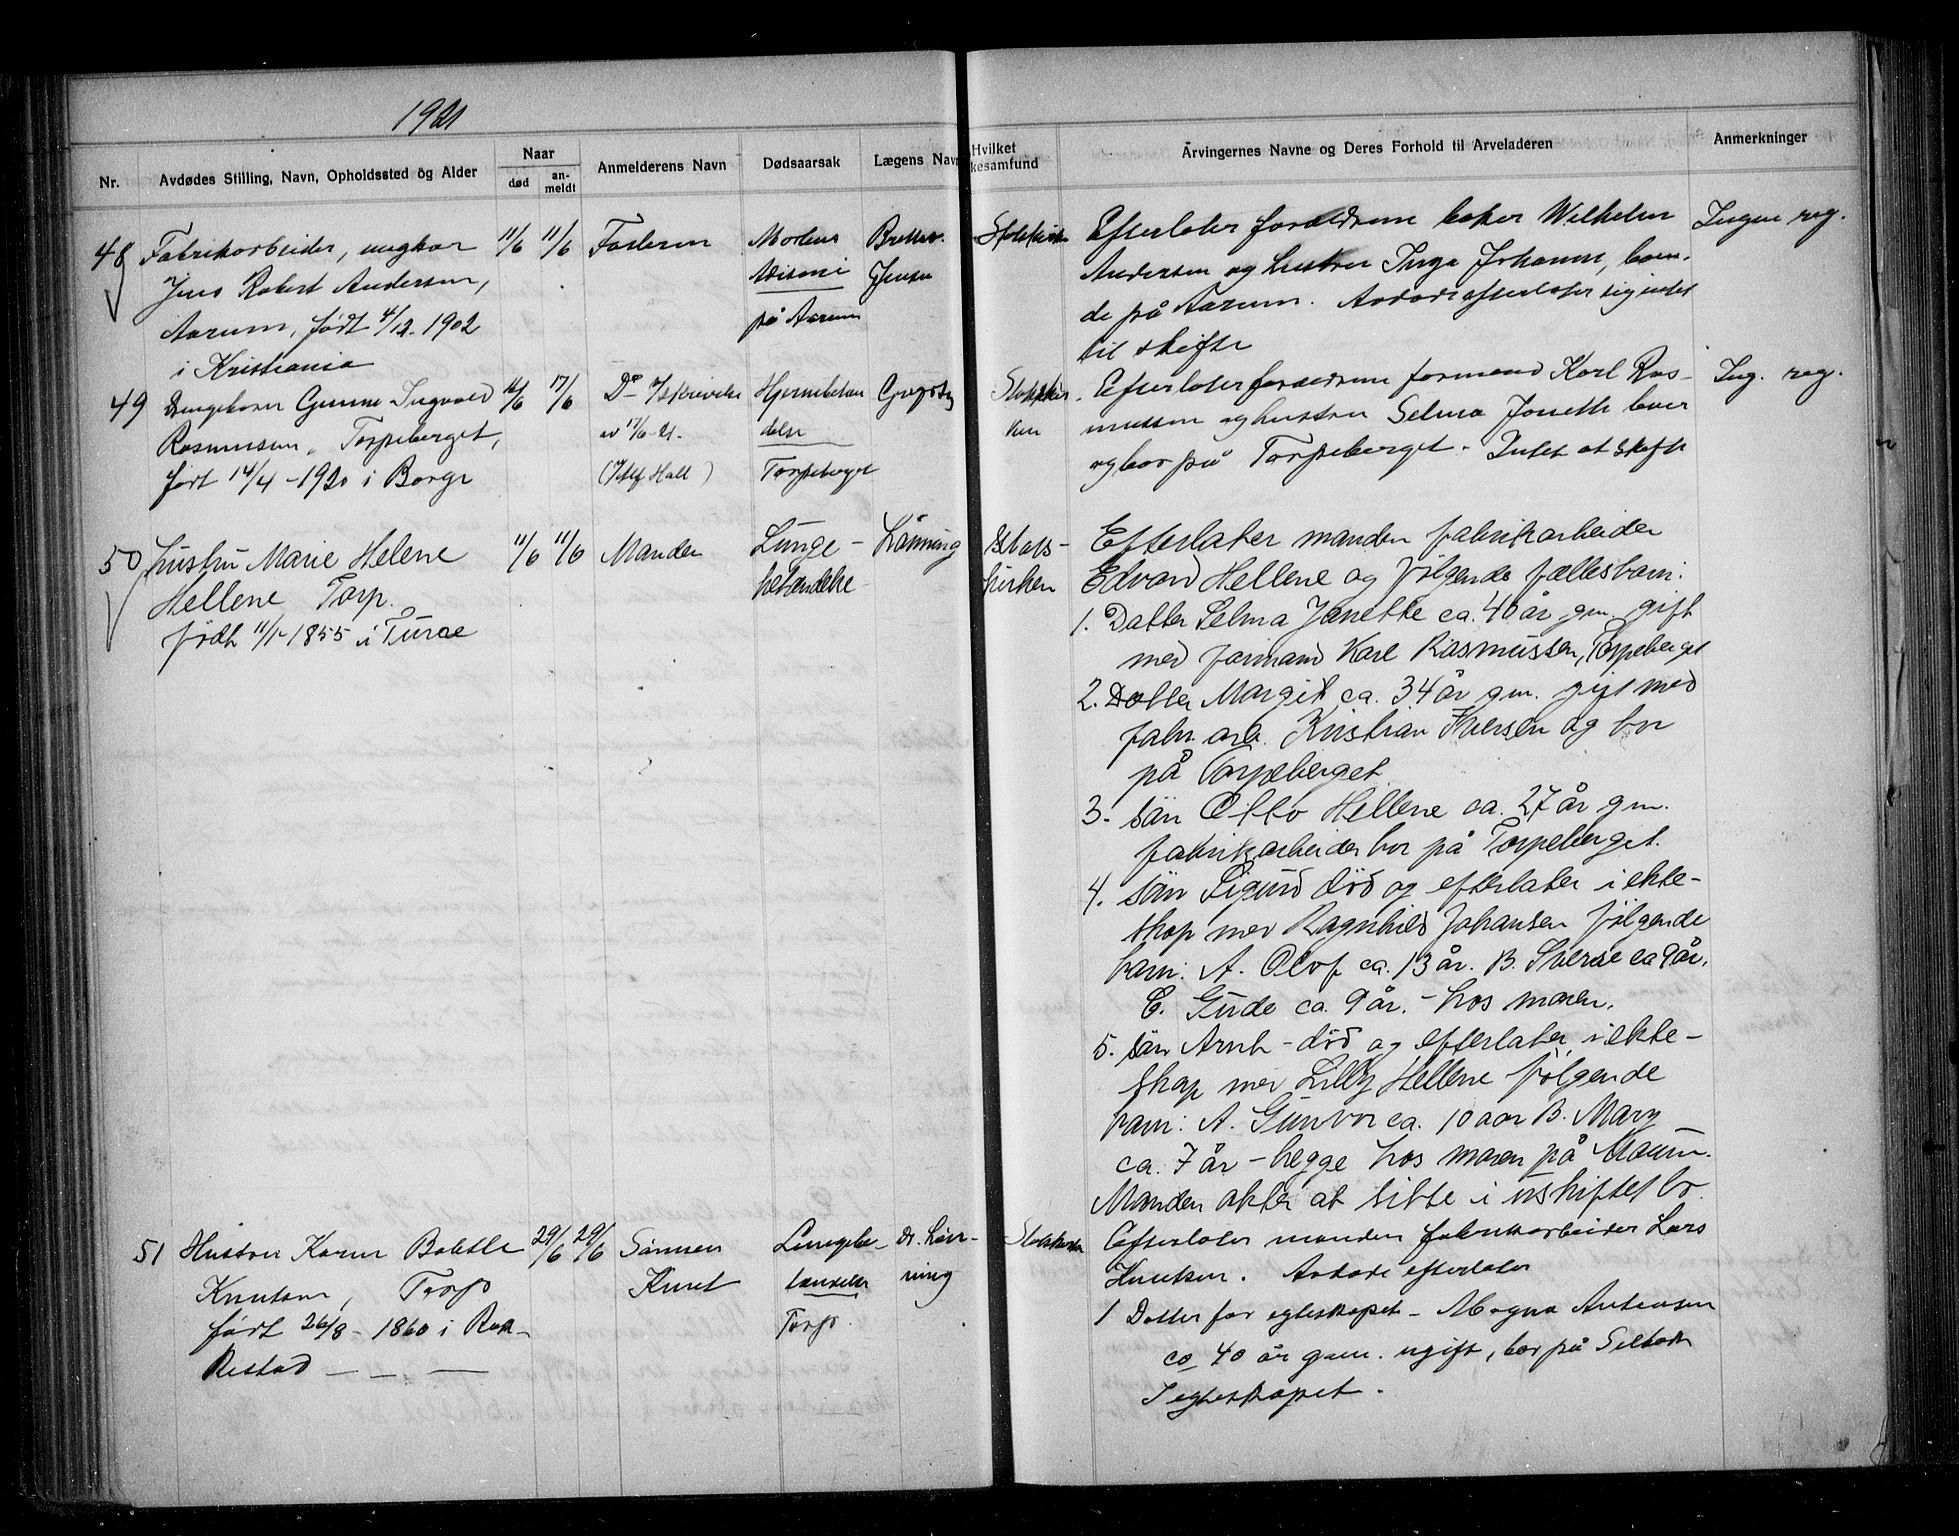 1921
Nr.
Avdødes Stilling, Navn, Opholdssted og Alder
Naar
død
an-
meldt
Anmelderens Navn
Dødsaarsak
Lægens Navn
Hvilket
kesamfund
Arvingernes Navne og Deres Forhold til Arveladeren
Anmerkninger
48
Fabrikarbeider, ungkar
Jens Robert Andersen,
Aarum, født 4/12-1902
i Kristiania
11/6 11/6
Faderen
Morbus
Adisoni
på Aarum
Jensen
Statskirken
Efterlater forældrene baker Wilhelm
Andersen og hustru Inga Johanne, boen-
de på Aarum. Avdøde efterlater sig intet
til skifte
Ingen reg.
49
Drengebarn Gunne Ingvald
Rasmussen, Torpeberget,
født 14/4-1920 i Borge
16/6 17/6
Do i skrivelse
av 17/6-21.
Hjernebetæn
delse
Torpeberget
Statskir
ken
Efterlater forældrene formand Karl Ras-
mussen og hustru Selma Janette lever
og bor på Torpeberget. Intet at skifte
Ing. reg.
50
Hustru Marie Helene
Hellene Torp.
født 11/1-1855 i Tune
11/6 11/6
Manden
Lunge-
betændelse
Lönning
Stats-
kirken
Efterlater manden fabrikarbeider
Edvard Hellene og følgende fællesbarn:
1. Datter Selma Janette ca. 40 år gm. gift
med formand Karl Rasmussen, Torpeberget
2. Datter Margit ca. 34 år gm. gift med
fabr. arb. Kristian Iversen og bor
på Torpeberget
3. Sön Otto Hellene ca. 27 år gm.
fabrikarbeider bor på Torpeberget.
4. Sön Sigurd död og efterlater i ekte-
skap med Ragnhild Johansen følgende
barn: A. Olof ca. 13 år. B. Sverre ca 9 år.
C. Gude ca. 9 år. - hos moren.
5. Sön Arnt - död og efterlater i ekte-
skap med Lilly Hellene følgende
barn: A. Gunvor ca. 10 aar B. Mary
ca. 7 år - begge hos moren på Moum.
Manden akter at sitte i uskiftet bo.
51
Hustru Karen Bolette
Knutsen, Torp
født 26/8-1860 i Rak-
kestad
29/6 29/6
Sønnen
Knut
Lungebe-
tændelse
Torp.
Dr. Lön-
ning
Statskirken
Efterlater manden fabrikarbeider Lars
Knutsen. Avdøde efterlater
1 Datter før egteskapet - Magna Antonsen
ca 40 år gam. ugift, bor på Selbak
I egteskapet.